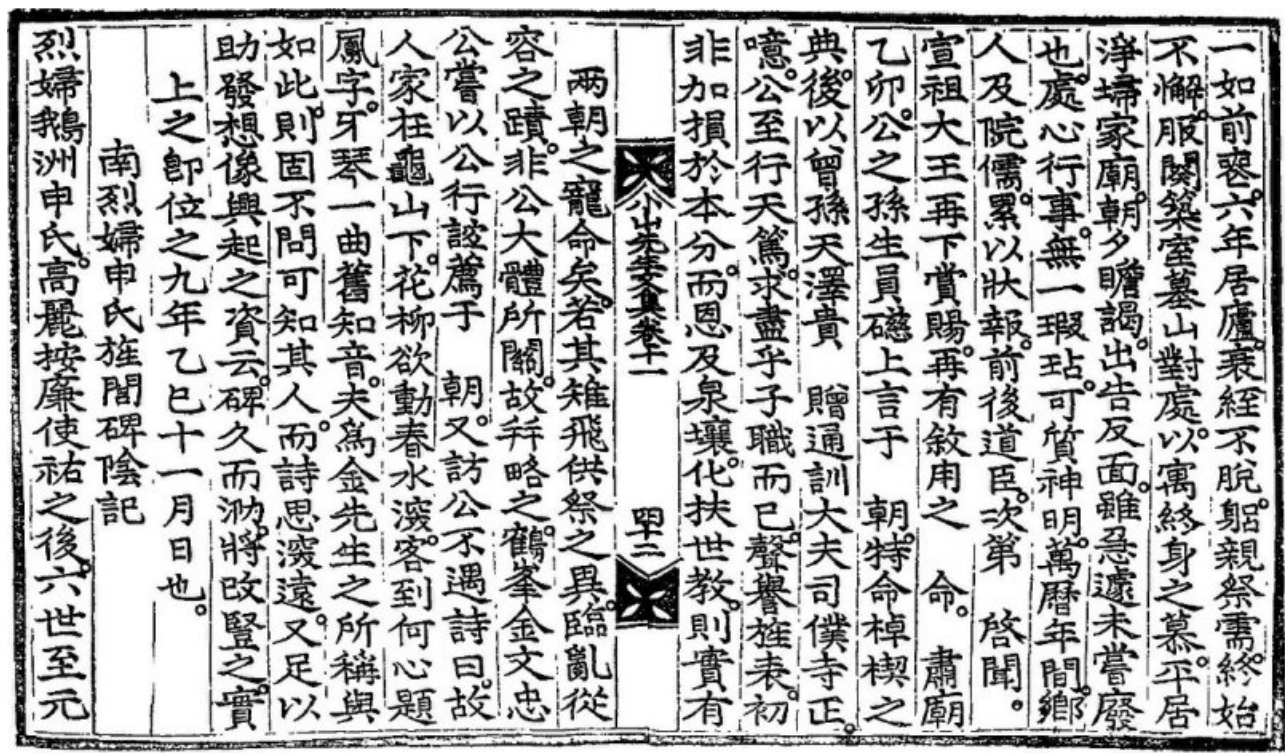 一如前喪。六年居廬。衰絰不脫。躬親祭需。終始
不懈。服闋。築室墓山對處。以寓終身之慕。平居
淨埽家廟。朝夕瞻謁。出告反面。雖急遽未嘗廢
也。處心行事。無一瑕玷。可質神明。萬曆年間。鄕
人及院儒。累以狀報。前後道臣。次第 啓聞。
宣祖大王再下賞賜。再有敘用之 命。 肅廟
乙卯。公之孫生員礠上言于 朝。特命棹楔之
典。後以曾孫天澤貴 贈通訓大夫司僕寺正。
噫。公至行天篤。求盡乎子職而已。聲譽旌表。初
非加損於本分。而恩及泉壤。化扶世教。則實有
小山先生文集卷十一 四十二
兩朝之寵命矣。若其雉飛供祭之異。臨亂從
容之蹟。非公大體所關。故幷略之。鶴峯金文忠
公嘗以公行誼薦于 朝。又訪公不遇詩曰。故
人家在龜山下。花柳欲動春水深。客到何心題
鳳字。牙琴一曲舊知音。夫爲金先生之所稱與
如此。則固不問可知其人。而詩思深遠。又足以
助發想像興起之資云。碑久而泐。將改豎之。實
上之卽位之九年乙巳十一月日也。
南烈婦申氏旌閭碑陰記
烈婦鵝洲申氏。高麗按廉使祐之後。六世至元